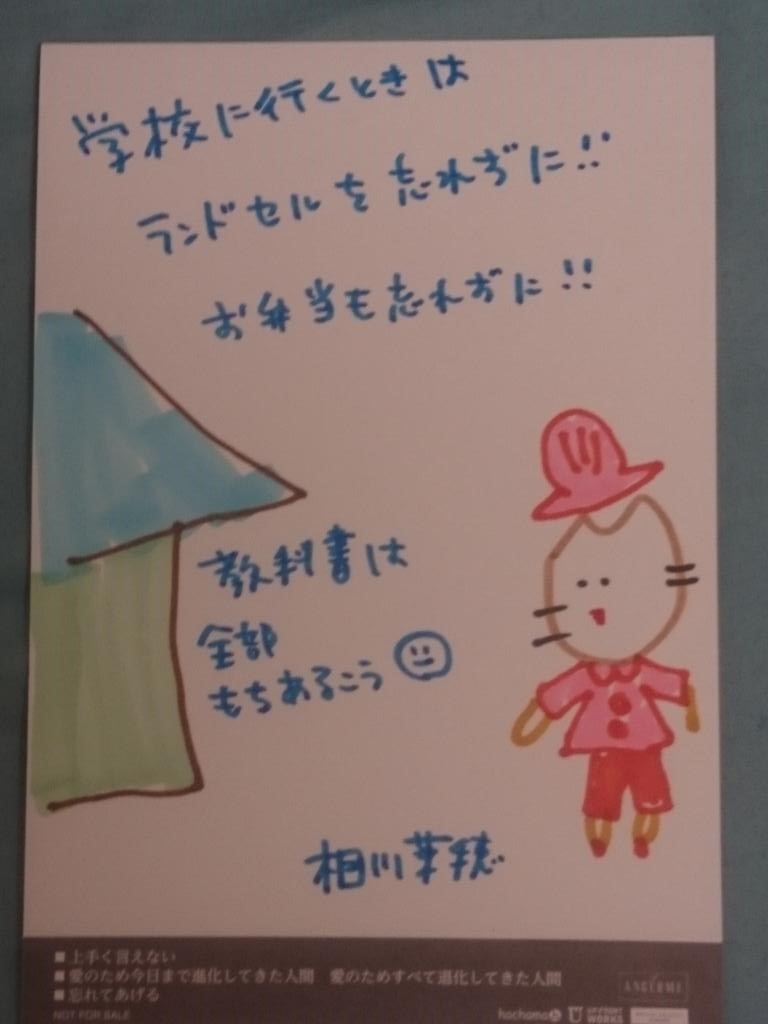 学校に行くときは
ランドセルを忘れずに!!
お弁当も忘れずに!!
教科書は
全部
もちあるこう
相川茉穂
■上手く言えない
■愛のため今日まで進化してきた人間　愛のためすべて進化してきた人間
■忘れてあげる
NOT FOR SALE
ANGERME
hachama
UP-FRONT WORKS